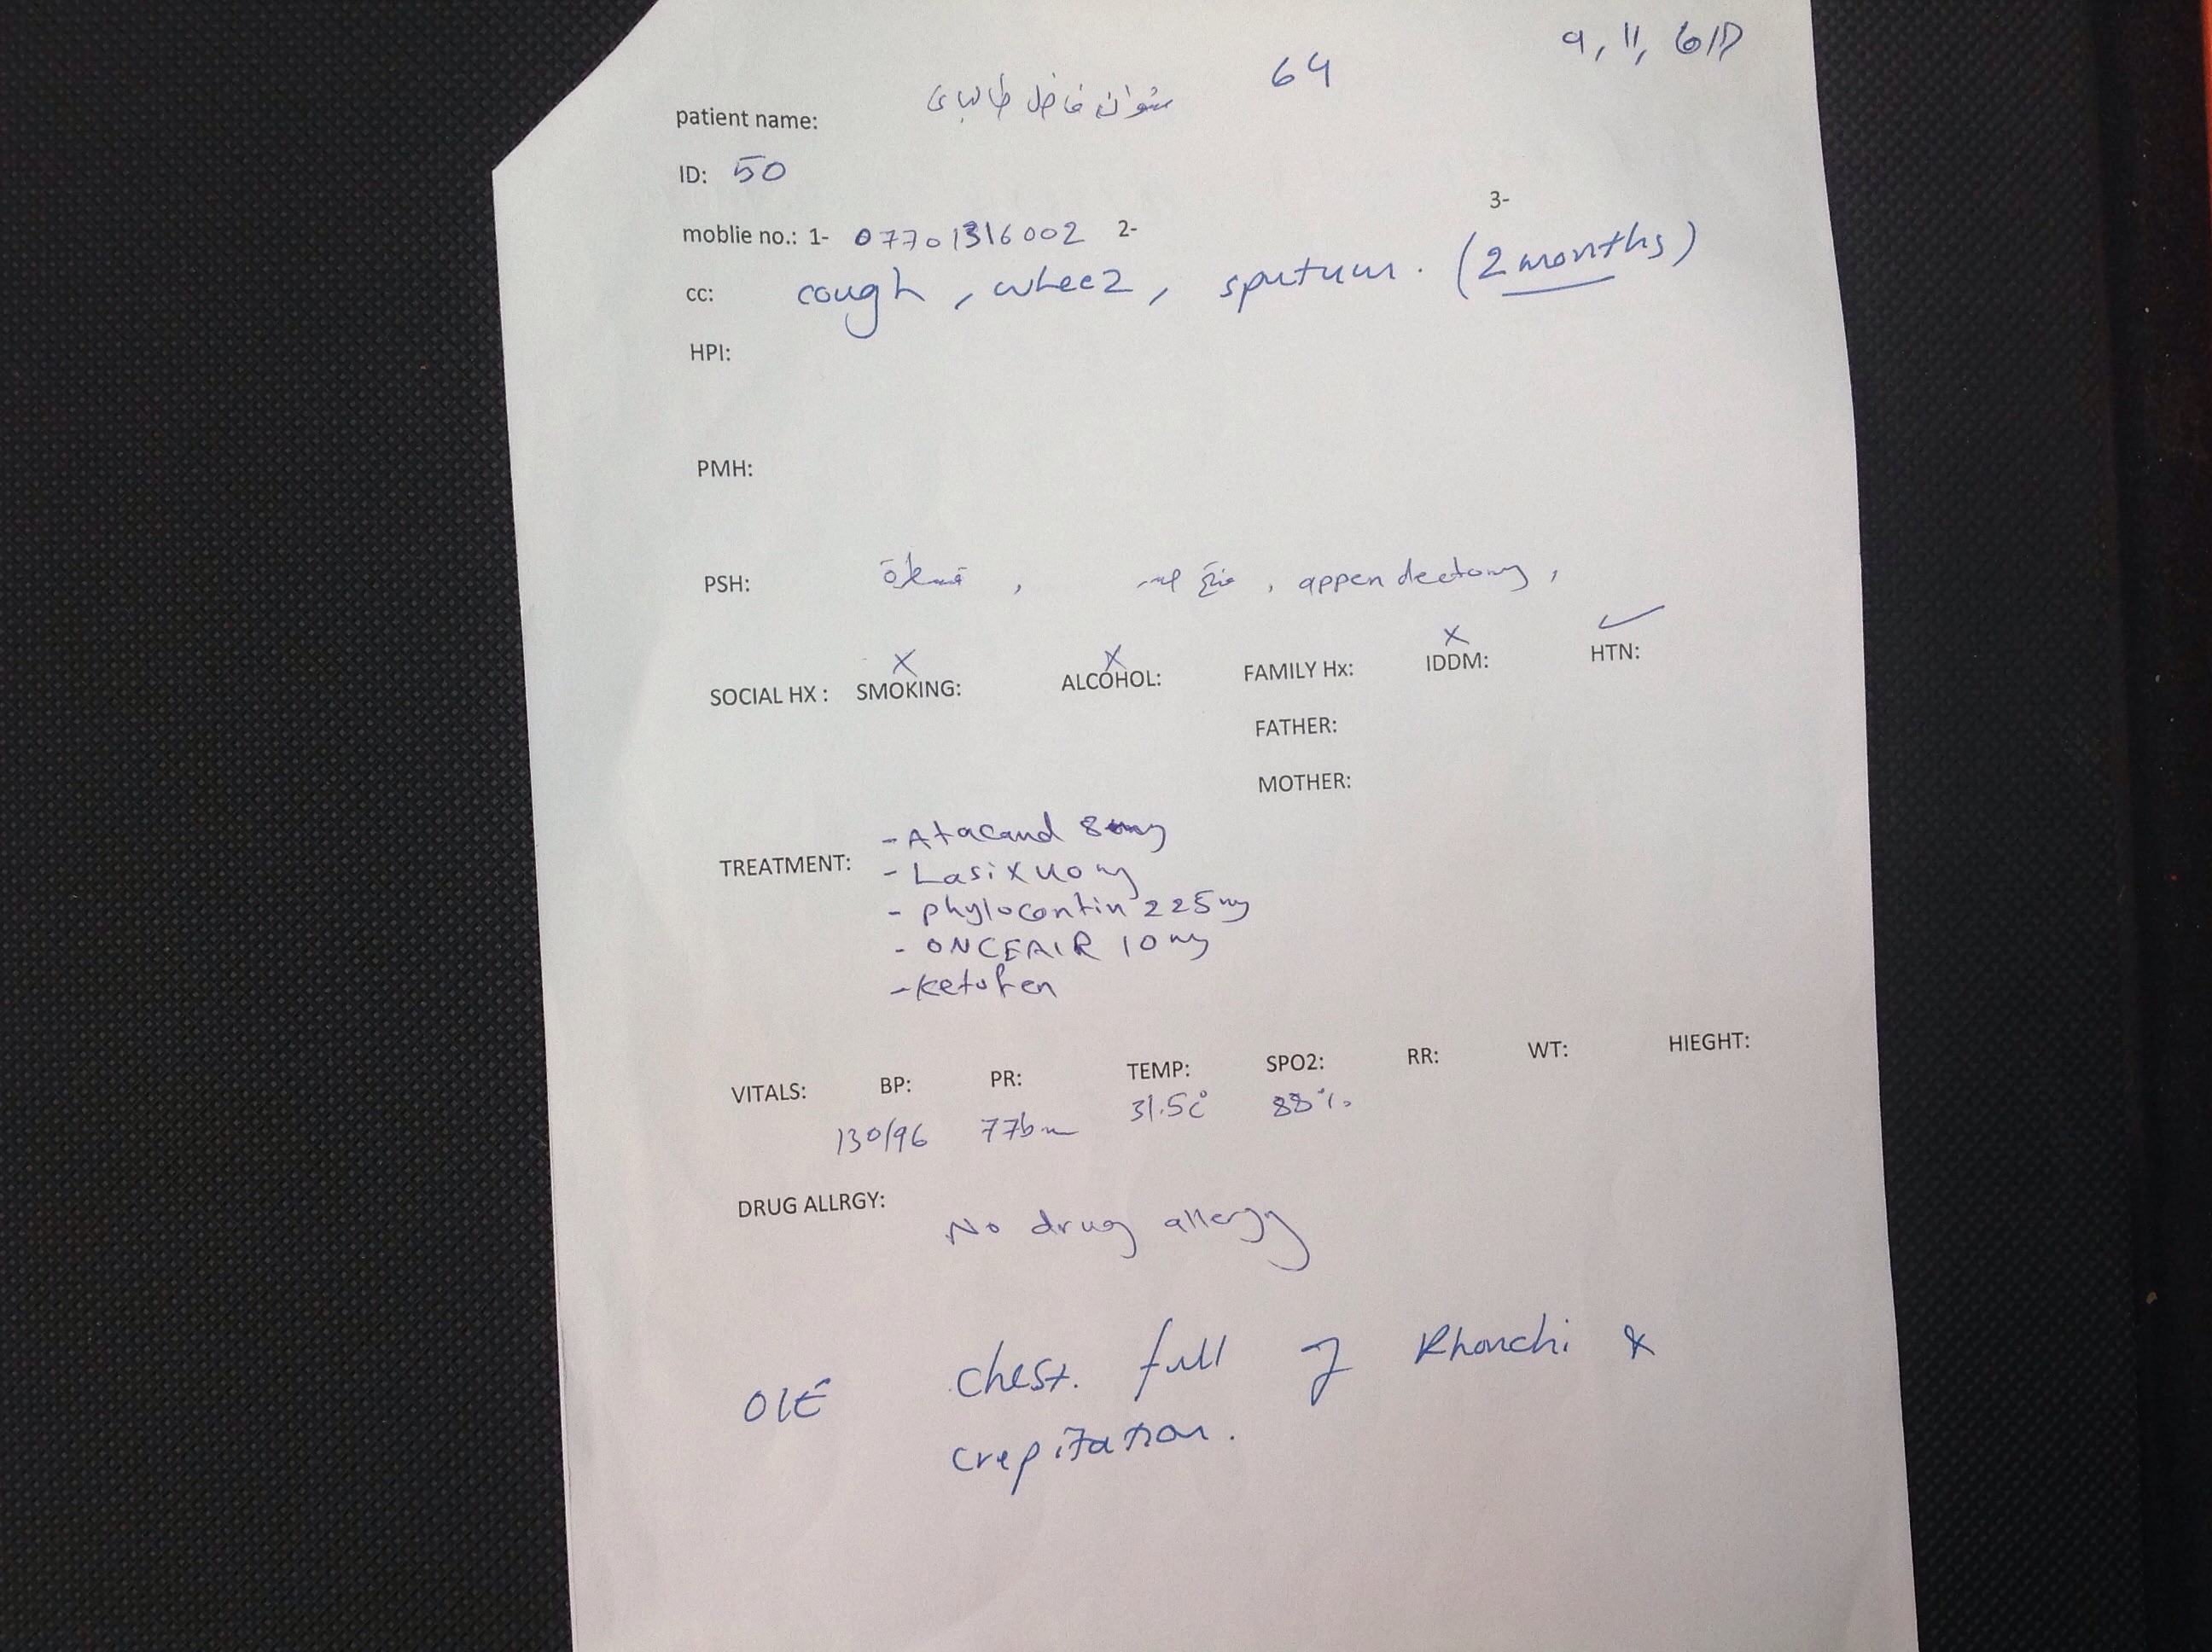 9, 11,
64
patient name: فاضل طالباي
ID: 50
3-
moblie no.: 1- 07701316002 2-
cc: cough, wheez, sputum. (2 months)
HPI:
PMH:
PSH: قسطرة , , appendectomy,
X X X ✓
SOCIAL HX : SMOKING: ALCOHOL: FAMILY Hx: IDDM: HTN:
FATHER:
MOTHER:
TREATMENT: - Atacand 8mg
- Lasix 40mg
- phylocontin 225mg
- ONCEAIR 10mg
- ketofen
VITALS: BP: PR: TEMP: SPO2: RR: WT: HIEGHT:
130/96 77bm 31.5c° 88%
DRUG ALLRGY: No drug allergy
O/E chest. full of Rhonchi &
crepitation.